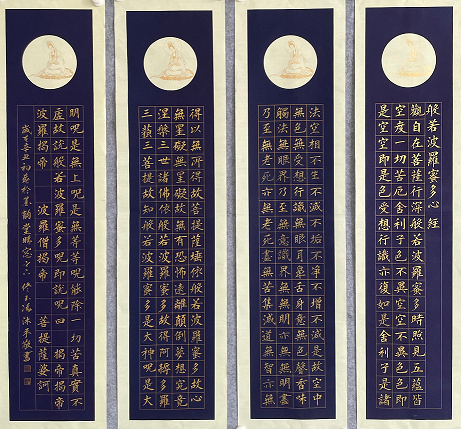 般若波羅蜜多心經
觀自在菩薩行深般若波羅蜜多時照見五蘊皆
空度一切苦厄舍利子色不異空空不異色色即
是空空即是色受想行識亦復如是舍利子是諸
法空相不生不滅不垢不淨不增不減是故空中
無色無受想行識無眼耳鼻舌身意無色聲香味
觸法無眼界乃至無意識界無無明亦無無明盡
乃至無老死亦無老死盡無苦集滅道無智亦無
得以無所得故菩提薩埵依般若波羅蜜多故心
無罣礙無罣礙故無有恐怖遠離顛倒夢想究竟
涅槃三世諸佛依般若波羅蜜多故得阿耨多羅
三藐三菩提故知般若波羅蜜多是大神呪是大
明呪是無上呪是無等等呪能除一切苦真實不
虛故說般若波羅蜜多呪即說呪曰 揭帝揭帝
波羅揭帝 波羅僧揭帝 菩提薩婆訶
歲次辛丑初 於 堂 沐手敬書